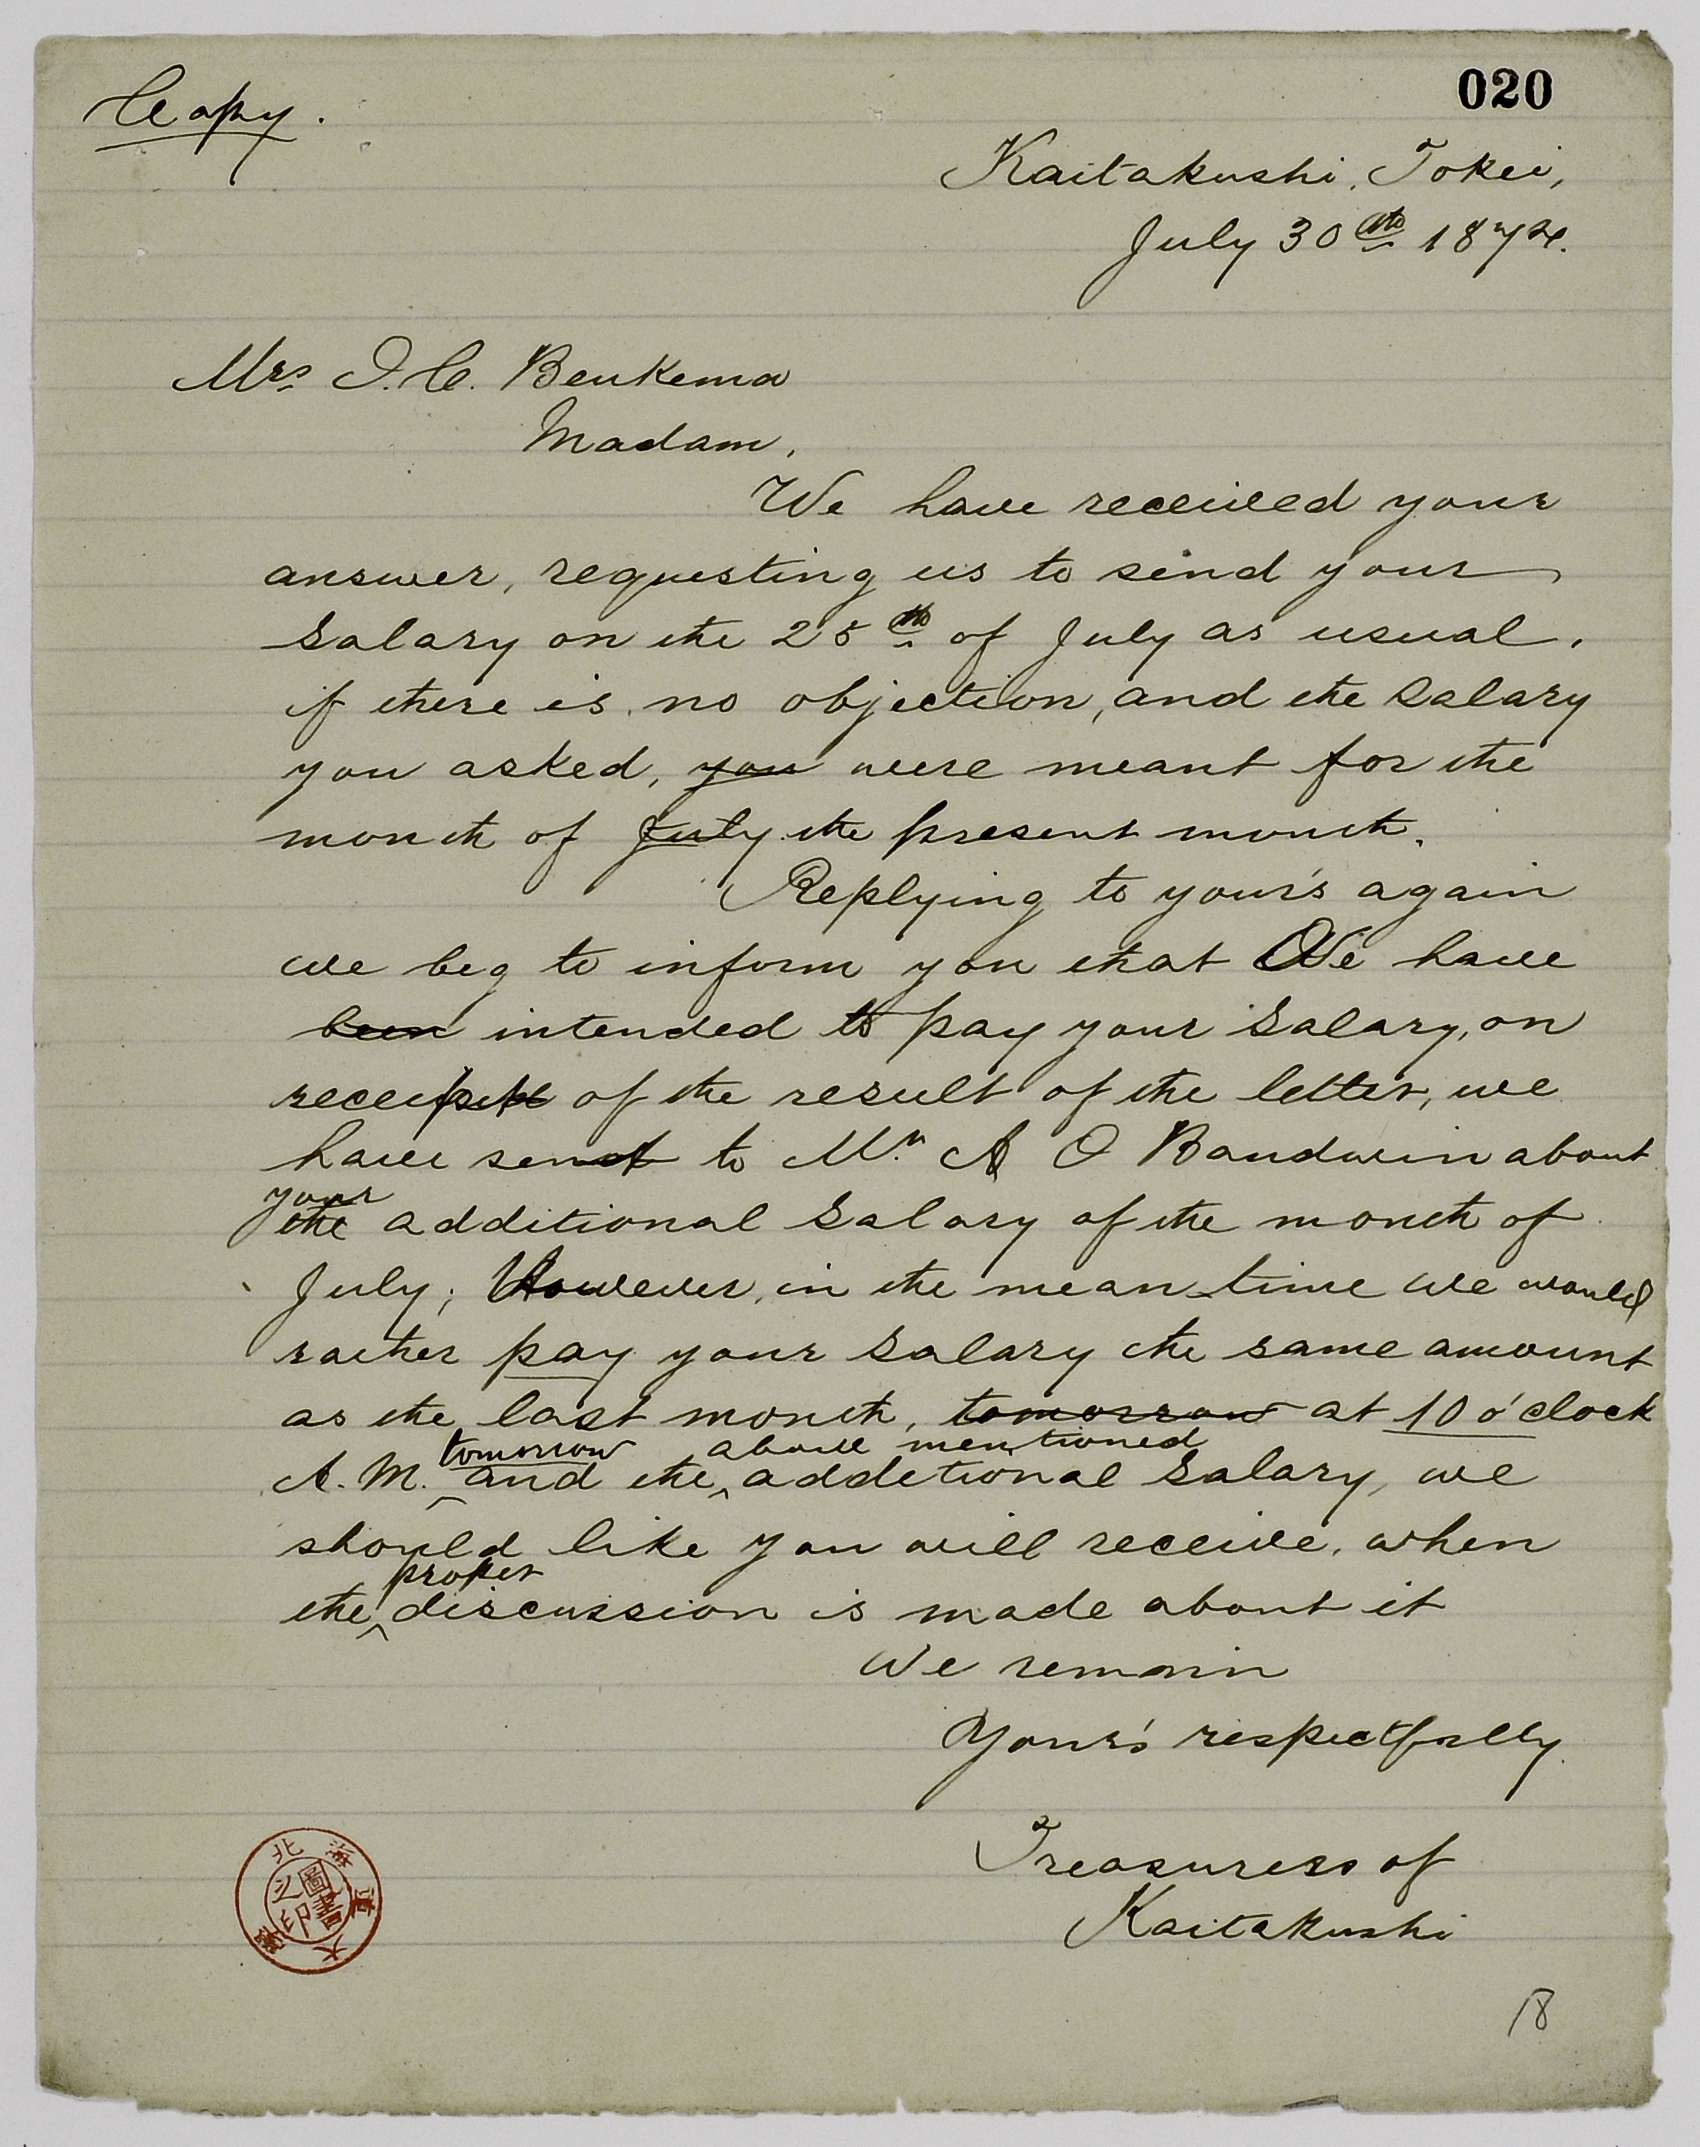 Copy.
020
Kaitakushi, Tokei,
July 30th 1874.
Mrs J. C. Beukema
Madam,
We have received your
answer, requesting us to send your
Salary on the 28th of July as usual,
if there is no objection, and the Salary
you asked, you were meant for the
month of July the present month.
Replying to your's again
we beg to inform you that We have
been intended to pay your Salary, on
receipt of the result of the letter, we
have sent to Mr A O Baudwin about
your
the additional Salary of the month of
July; However, in the mean time we would
rather pay your Salary the same amount
as the last month, tomorrow at 10 o'clock
tomorrow above mentioned
A.M. and the additional Salary, we
should like you will receive, when
proper
the discussion is made about it
We remain
Your's respectfully
Treasurers of
Kaitakushi
北海道大學
圖書之印
18